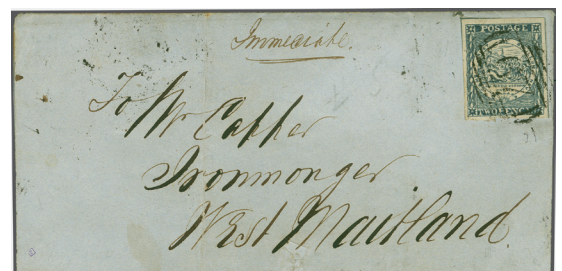 Immediate.
POSTAGE
To Mr Capper
Ironmonger
West Maitland.